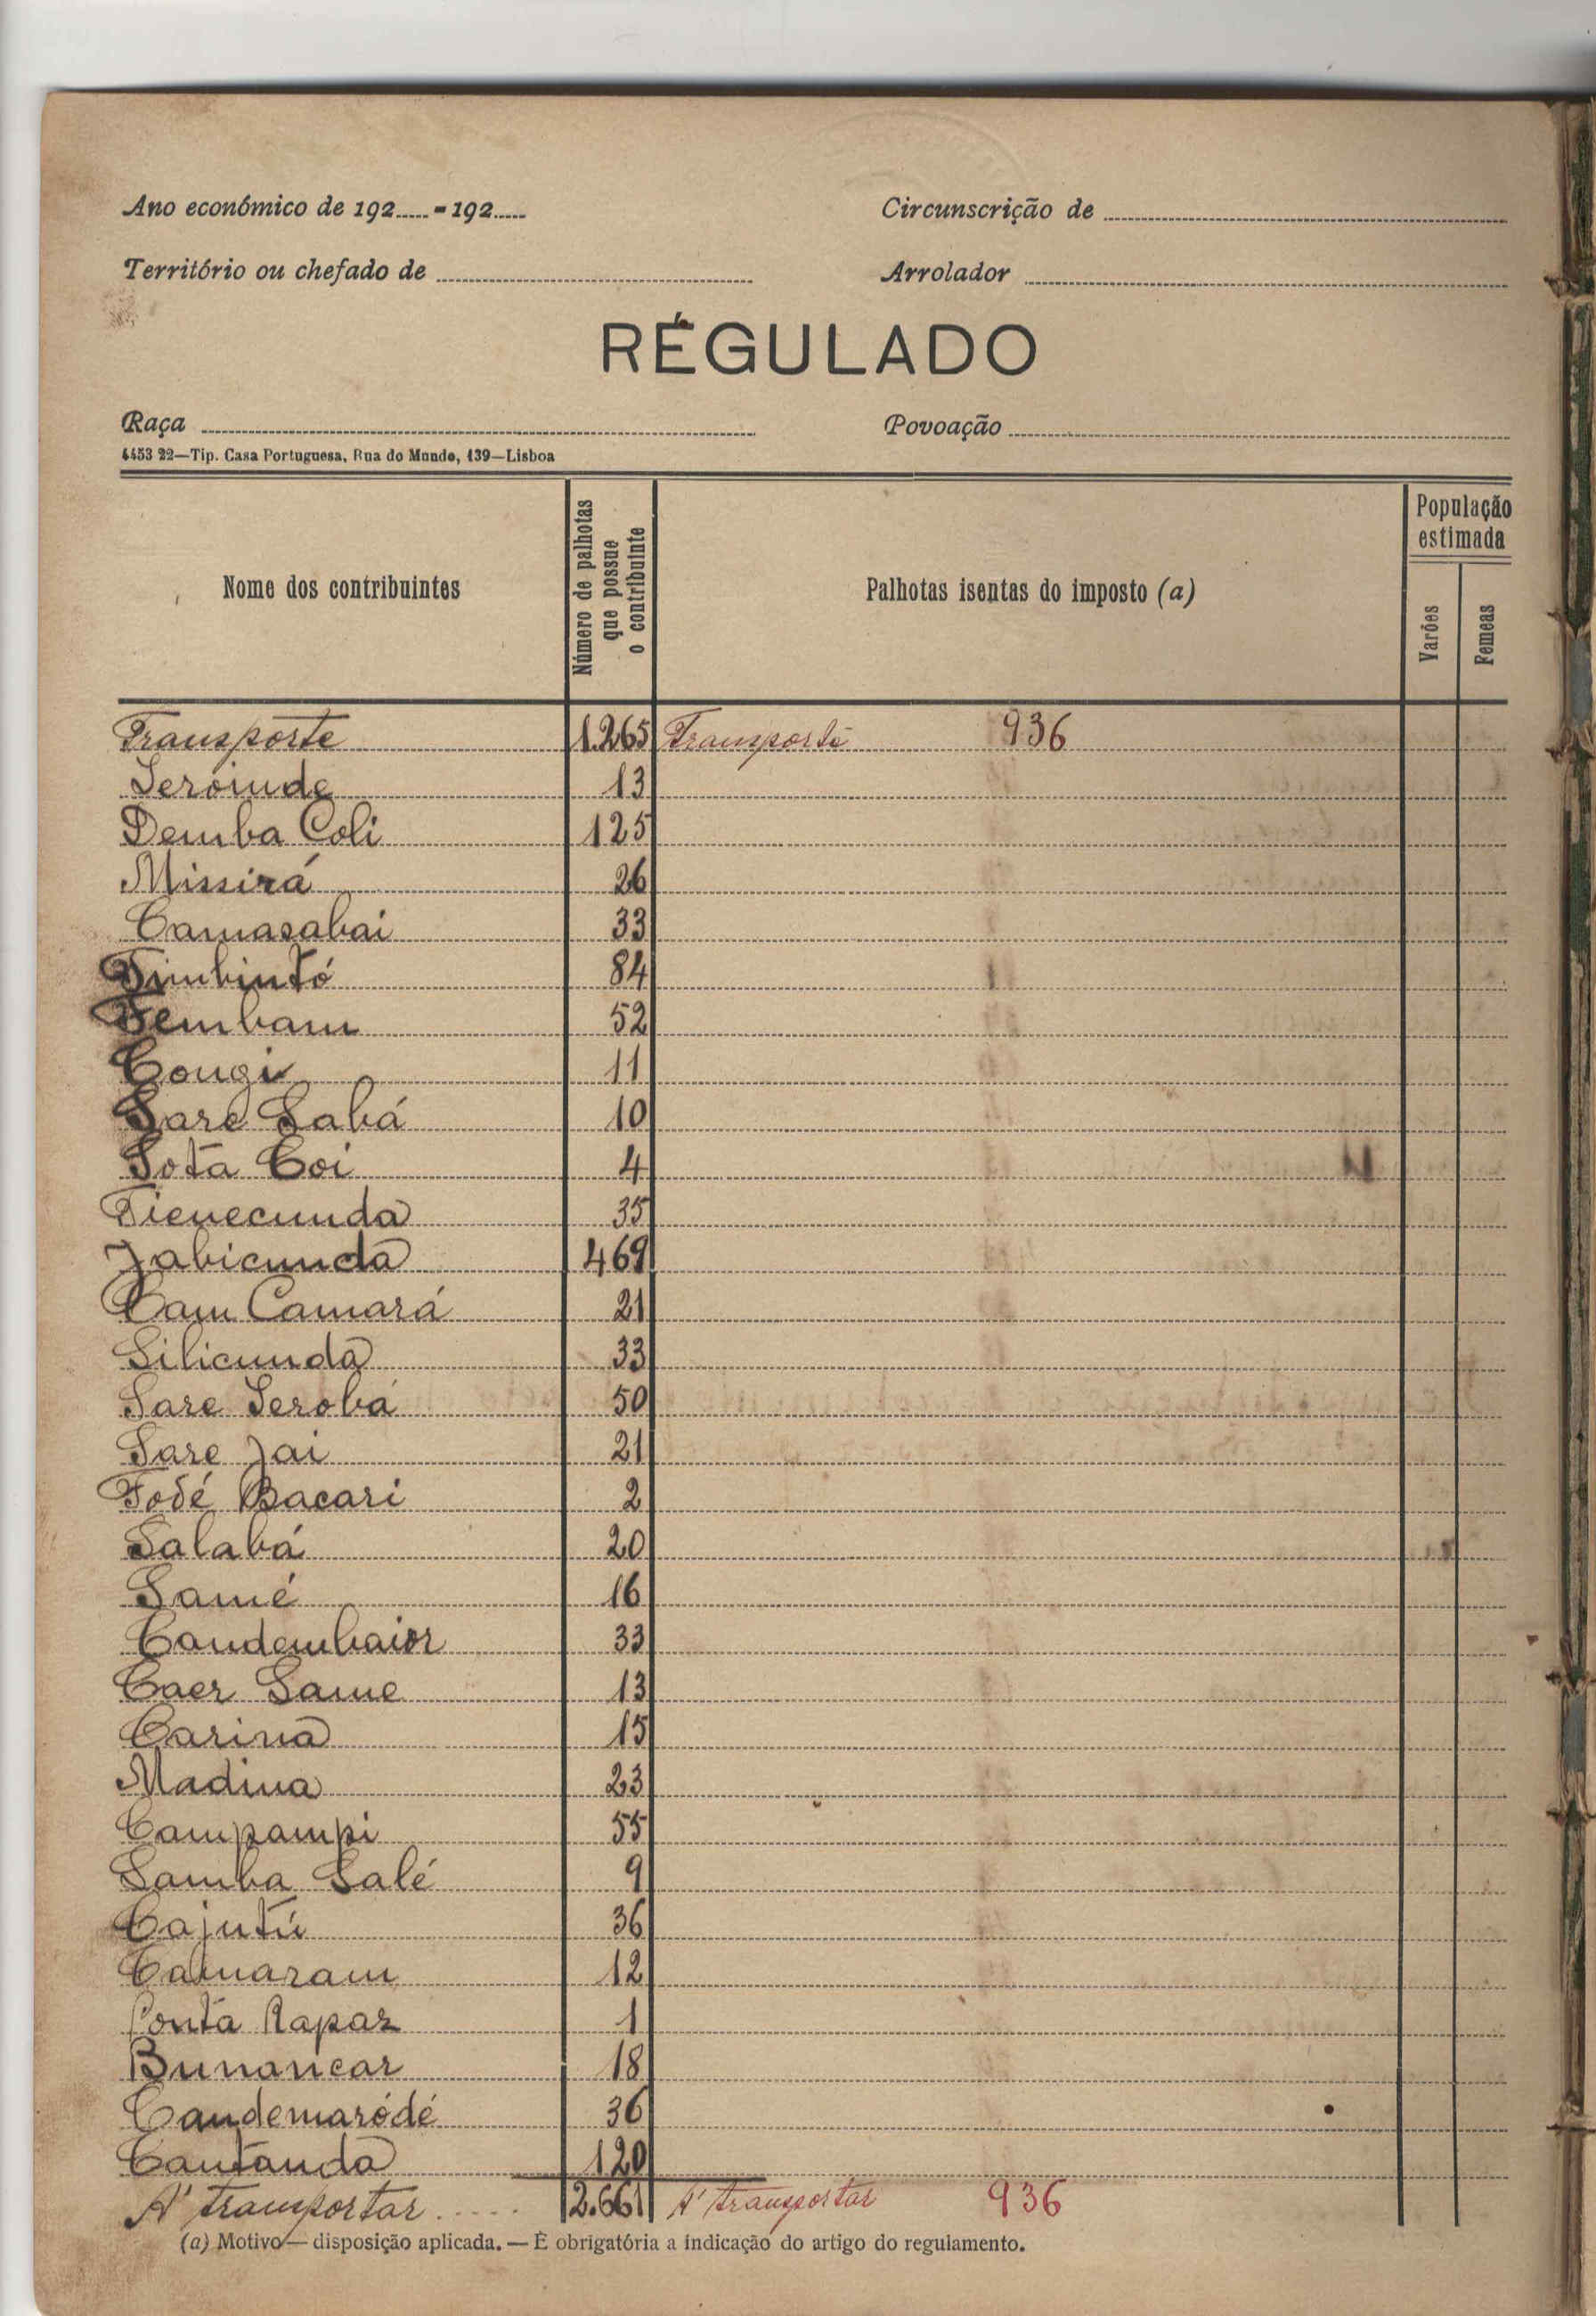 Ano económico de 192.....-192.....
Circunscrição de
Território ou chefado de
Arrolador
RÉGULADO
Raça
Povoação
4453 22—Tip. Casa Portuguesa, Rua do Mundo, 139—Lisboa
Nome dos contribuintes
Número de palhotas que possue o contribuinte
Palhotas isentas do imposto (a)
População estimada
Varões
Femeas
Transporte 1.265 Transporte 936
Seroinde 13
Demba Coli 125
Missirá 26
Camasabai 33
Timbintó 84
Tembam 52
Cougi 11
Sare Sabá 10
Sota Coi 4
Tienecunda 35
Jabicunda 469
Cam Camará 21
Silicunda 33
Sare Serobá 50
Sare Jai 21
Fodé Bacari 2
Salabá 20
Samé 16
Candembaior 33
Caer Same 13
Carina 15
Madina 23
Campampi 55
Samba Salé 9
Cajutú 36
Camaram 12
Ponta Rapaz 1
Bunancar 18
Candemaródé 36
Cantanda 120
A' transportar ..... 2.661 A' transportar 936
(a) Motivo — disposição aplicada. — È obrigatória a indicação do artigo do regulamento.